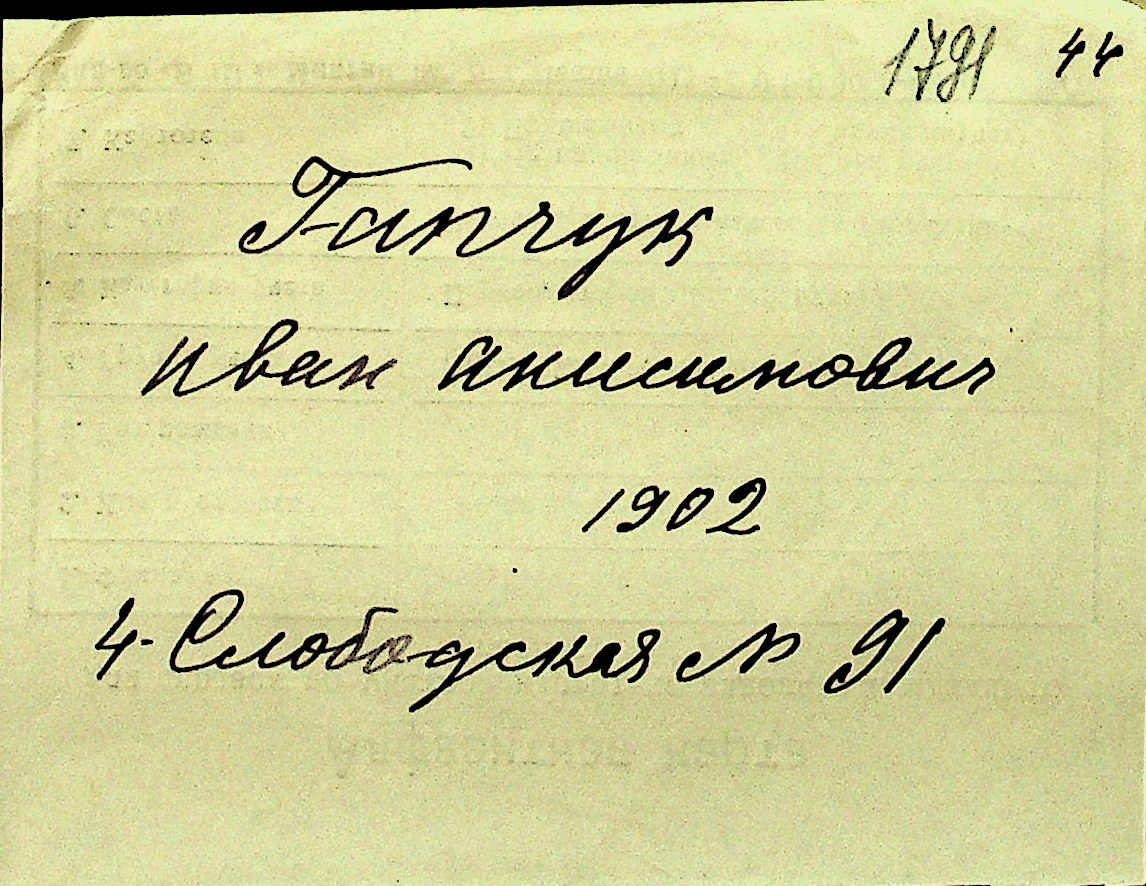 1791 44
Гапчук
Иван Анисимович
1902
4-Слободская № 91